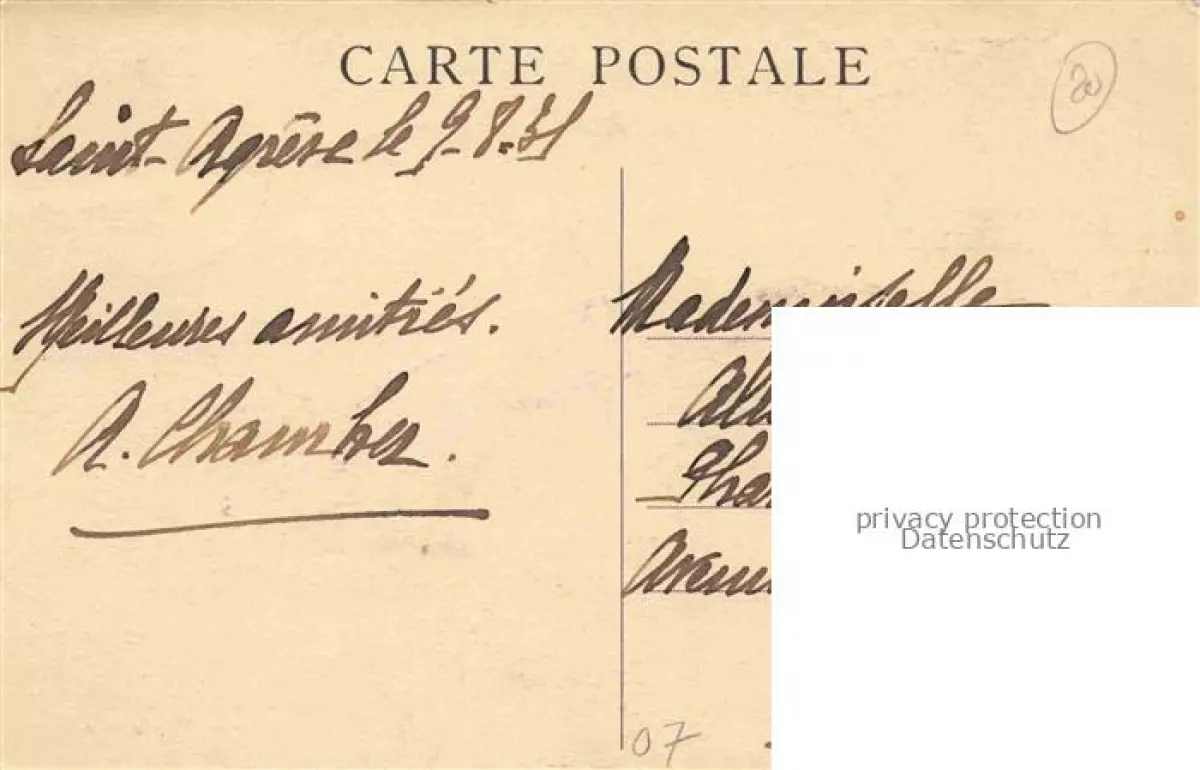 CARTE POSTALE
20
Saint-Agrève le 9-8.31
Meilleures amitiés.
A. Chamber.
Mademoiselle
privacy protection
Datenschutz
07